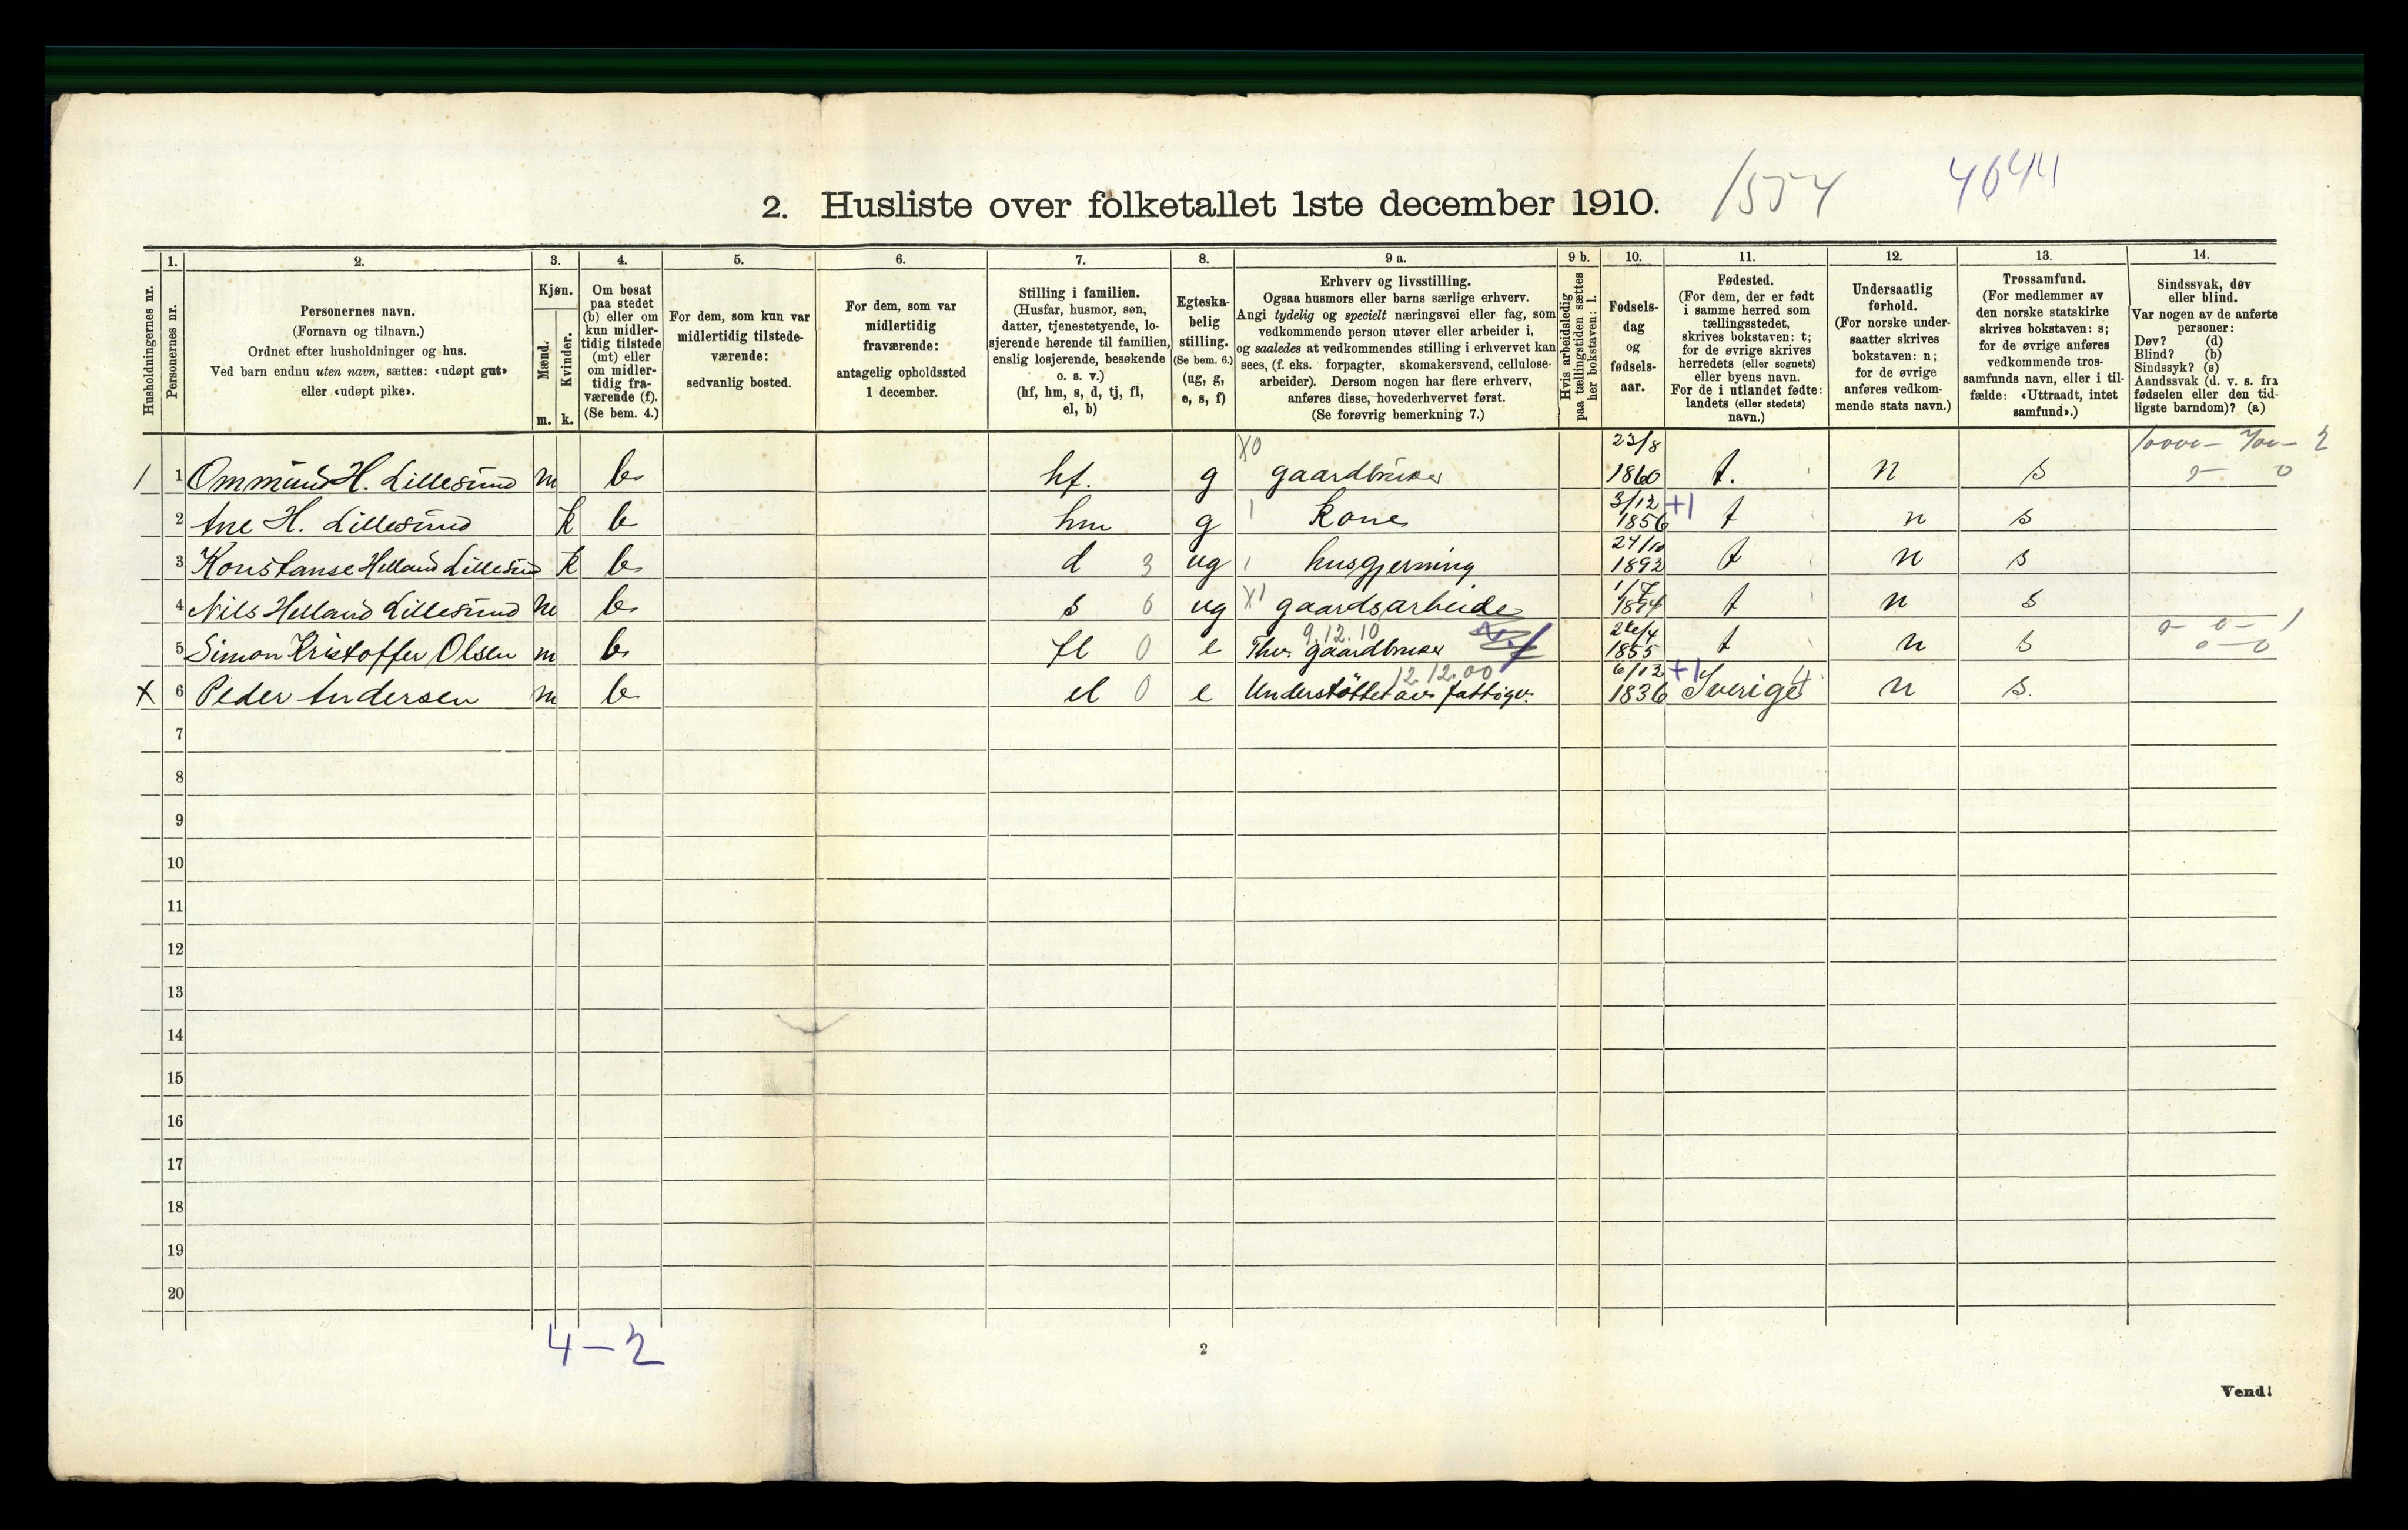 2. Husliste over folketallet 1ste december 1910. 1554
1. 2. 3. 4. 5. 6. 7. 8. 9 a. 9 b. 10. 11. 12. 13. 14.
Husholdningernes nr.
Personernes nr.
Personernes navn.
(Fornavn og tilnavn.)
Ordnet efter husholdninger og hus.
Ved barn endnu uten navn, sættes: «udøpt gut»
eller «udøpt pike».
Kjøn.
Mænd.
m.
Kvinder.
k.
Om bosat
paa stedet
(b) eller om
kun midler-
tidig tilstede
(mt) eller
om midler-
tidig fra-
værende (f).
(Se bem. 4.)
For dem, som kun var
midlertidig tilstede-
værende:
sedvanlig bosted.
For dem, som var
midlertidig
fraværende:
antagelig opholdssted
1 december.
Stilling i familien.
(Husfar, husmor, søn,
datter, tjenestetyende, lo-
sjerende hørende til familien,
enslig losjerende, besøkende
o. s. v.)
(hf, hm, s, d, tj, fl,
el, b)
Egteska-
belig
stilling.
(Se bem. 6.)
(ug, g,
e, s, f)
Erhverv og livsstilling.
Ogsaa husmors eller barns særlige erhverv.
Angi tydelig og specielt næringsvei eller fag, som
vedkommende person utøver eller arbeider i,
og saaledes at vedkommendes stilling i erhvervet kan
sees, (f. eks. forpagter, skomakersvend, cellulose-
arbeider). Dersom nogen har flere erhverv,
anføres disse, hovederhvervet først.
(Se forøvrig bemerkning 7.)
Hvis arbeidsledig
paa tællingstiden sættes
her bokstaven: l.
Fødsels-
dag
og
fødsels-
aar.
Fødested.
(For dem, der er født
i samme herred som
tællingsstedet,
skrives bokstaven: t;
for de øvrige skrives
herredets (eller sognets)
eller byens navn.
For de i utlandet fødte:
landets (eller stedets)
navn.)
Undersaatlig
forhold.
(For norske under-
saatter skrives
bokstaven: n;
for de øvrige
anføres vedkom-
mende stats navn.)
Trossamfund.
(For medlemmer av
den norske statskirke
skrives bokstaven: s;
for de øvrige anføres
vedkommende tros-
samfunds navn, eller i til-
fælde: «Uttraadt, intet
samfund».)
Sindssvak, døv
eller blind.
Var nogen av de anførte
personer:
Døv? (d)
Blind? (b)
Sindssyk? (s)
Aandssvak (d. v. s. fra
fødselen eller den tid-
ligste barndom)? (a)
1 1 Ommund H. Lillesund m b hf. g X0 gaardbruker 23/8 1860 t. n s
2 Ane H. Lillesund k b hm g 1 Kone 3/12 1856 +1 t n s
3 Konstanse Helland Lillesund k b d 3 ug 1 husgjerning 1892 t n s
4 Nils Helland Lillesund m b s 0 ug X1 gaardsarbeide 1/7 1894 t n s
5 Simon Kristoffer Olsen m b fl 0 e 9.12.10 gaardbruker 1855 t n s
X 6 Peder Andersen m b el 0 e 12.12.00 Understöttet av fattigv. 6/12 1836 +1 Sverige 4 n s.
7
8
9
10
11
12
13
14
15
16
17
18
19
20
4 – 2
2
Vend!